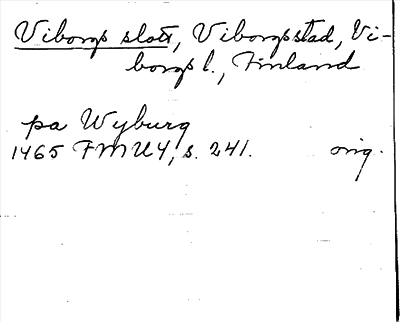 Viborgs slott, Viborgsstad, Vi-
borgs l., Finland
pa Wyburg
1465 FMU4, s. 241. orig.